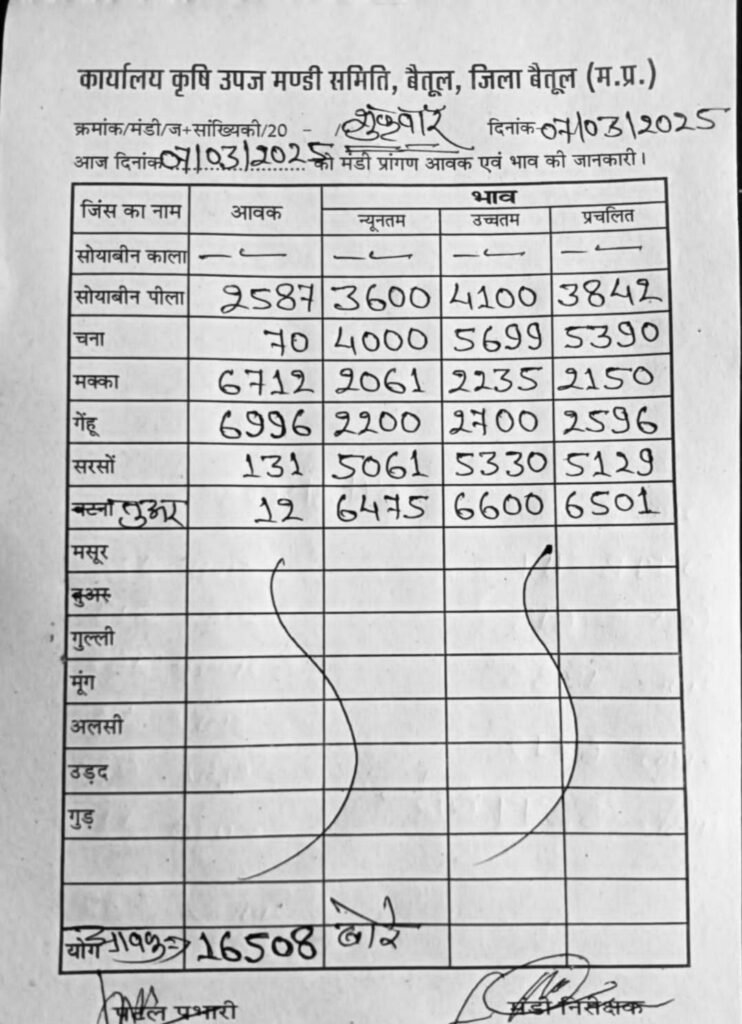 कार्यालय कृषि उपज मण्डी समिति, बैतूल, जिला बैतूल (म.प्र.)
क्रमांक/मंडी/ज+सांख्यिकी/20 - /शुक्रवार दिनांक 07/03/2025
आज दिनांक 07/03/2025 की मंडी प्रांगण आवक एवं भाव की जानकारी।
जिंस का नाम आवक भाव
न्यूनतम उच्चतम प्रचलित
सोयाबीन काला — — — —
सोयाबीन पीला 2587 3600 4100 3842
चना 70 4000 5699 5390
मक्का 6712 2061 2235 2150
गेंहू 6996 2200 2700 2596
सरसों 131 5061 5330 5129
बटना तुअर 12 6475 6600 6501
मसूर
तुअर
गुल्ली
मूंग
अलसी
उड़द
गुड़
योग आवक = 16508 बोरे
पोर्टल प्रभारी मंडी निरीक्षक